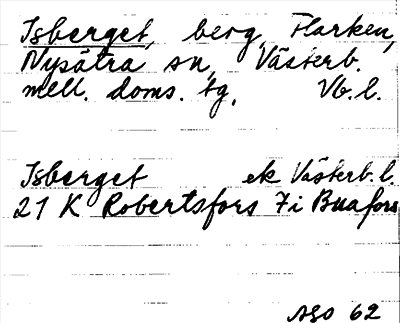 Isberget, berg, Flarken,
Nysätra sn, Västerb.
mell. doms. tg, Vb. l.
Isberget ek Västerb. l.
21 K Robertsfors 7i Buafors
ASO 62